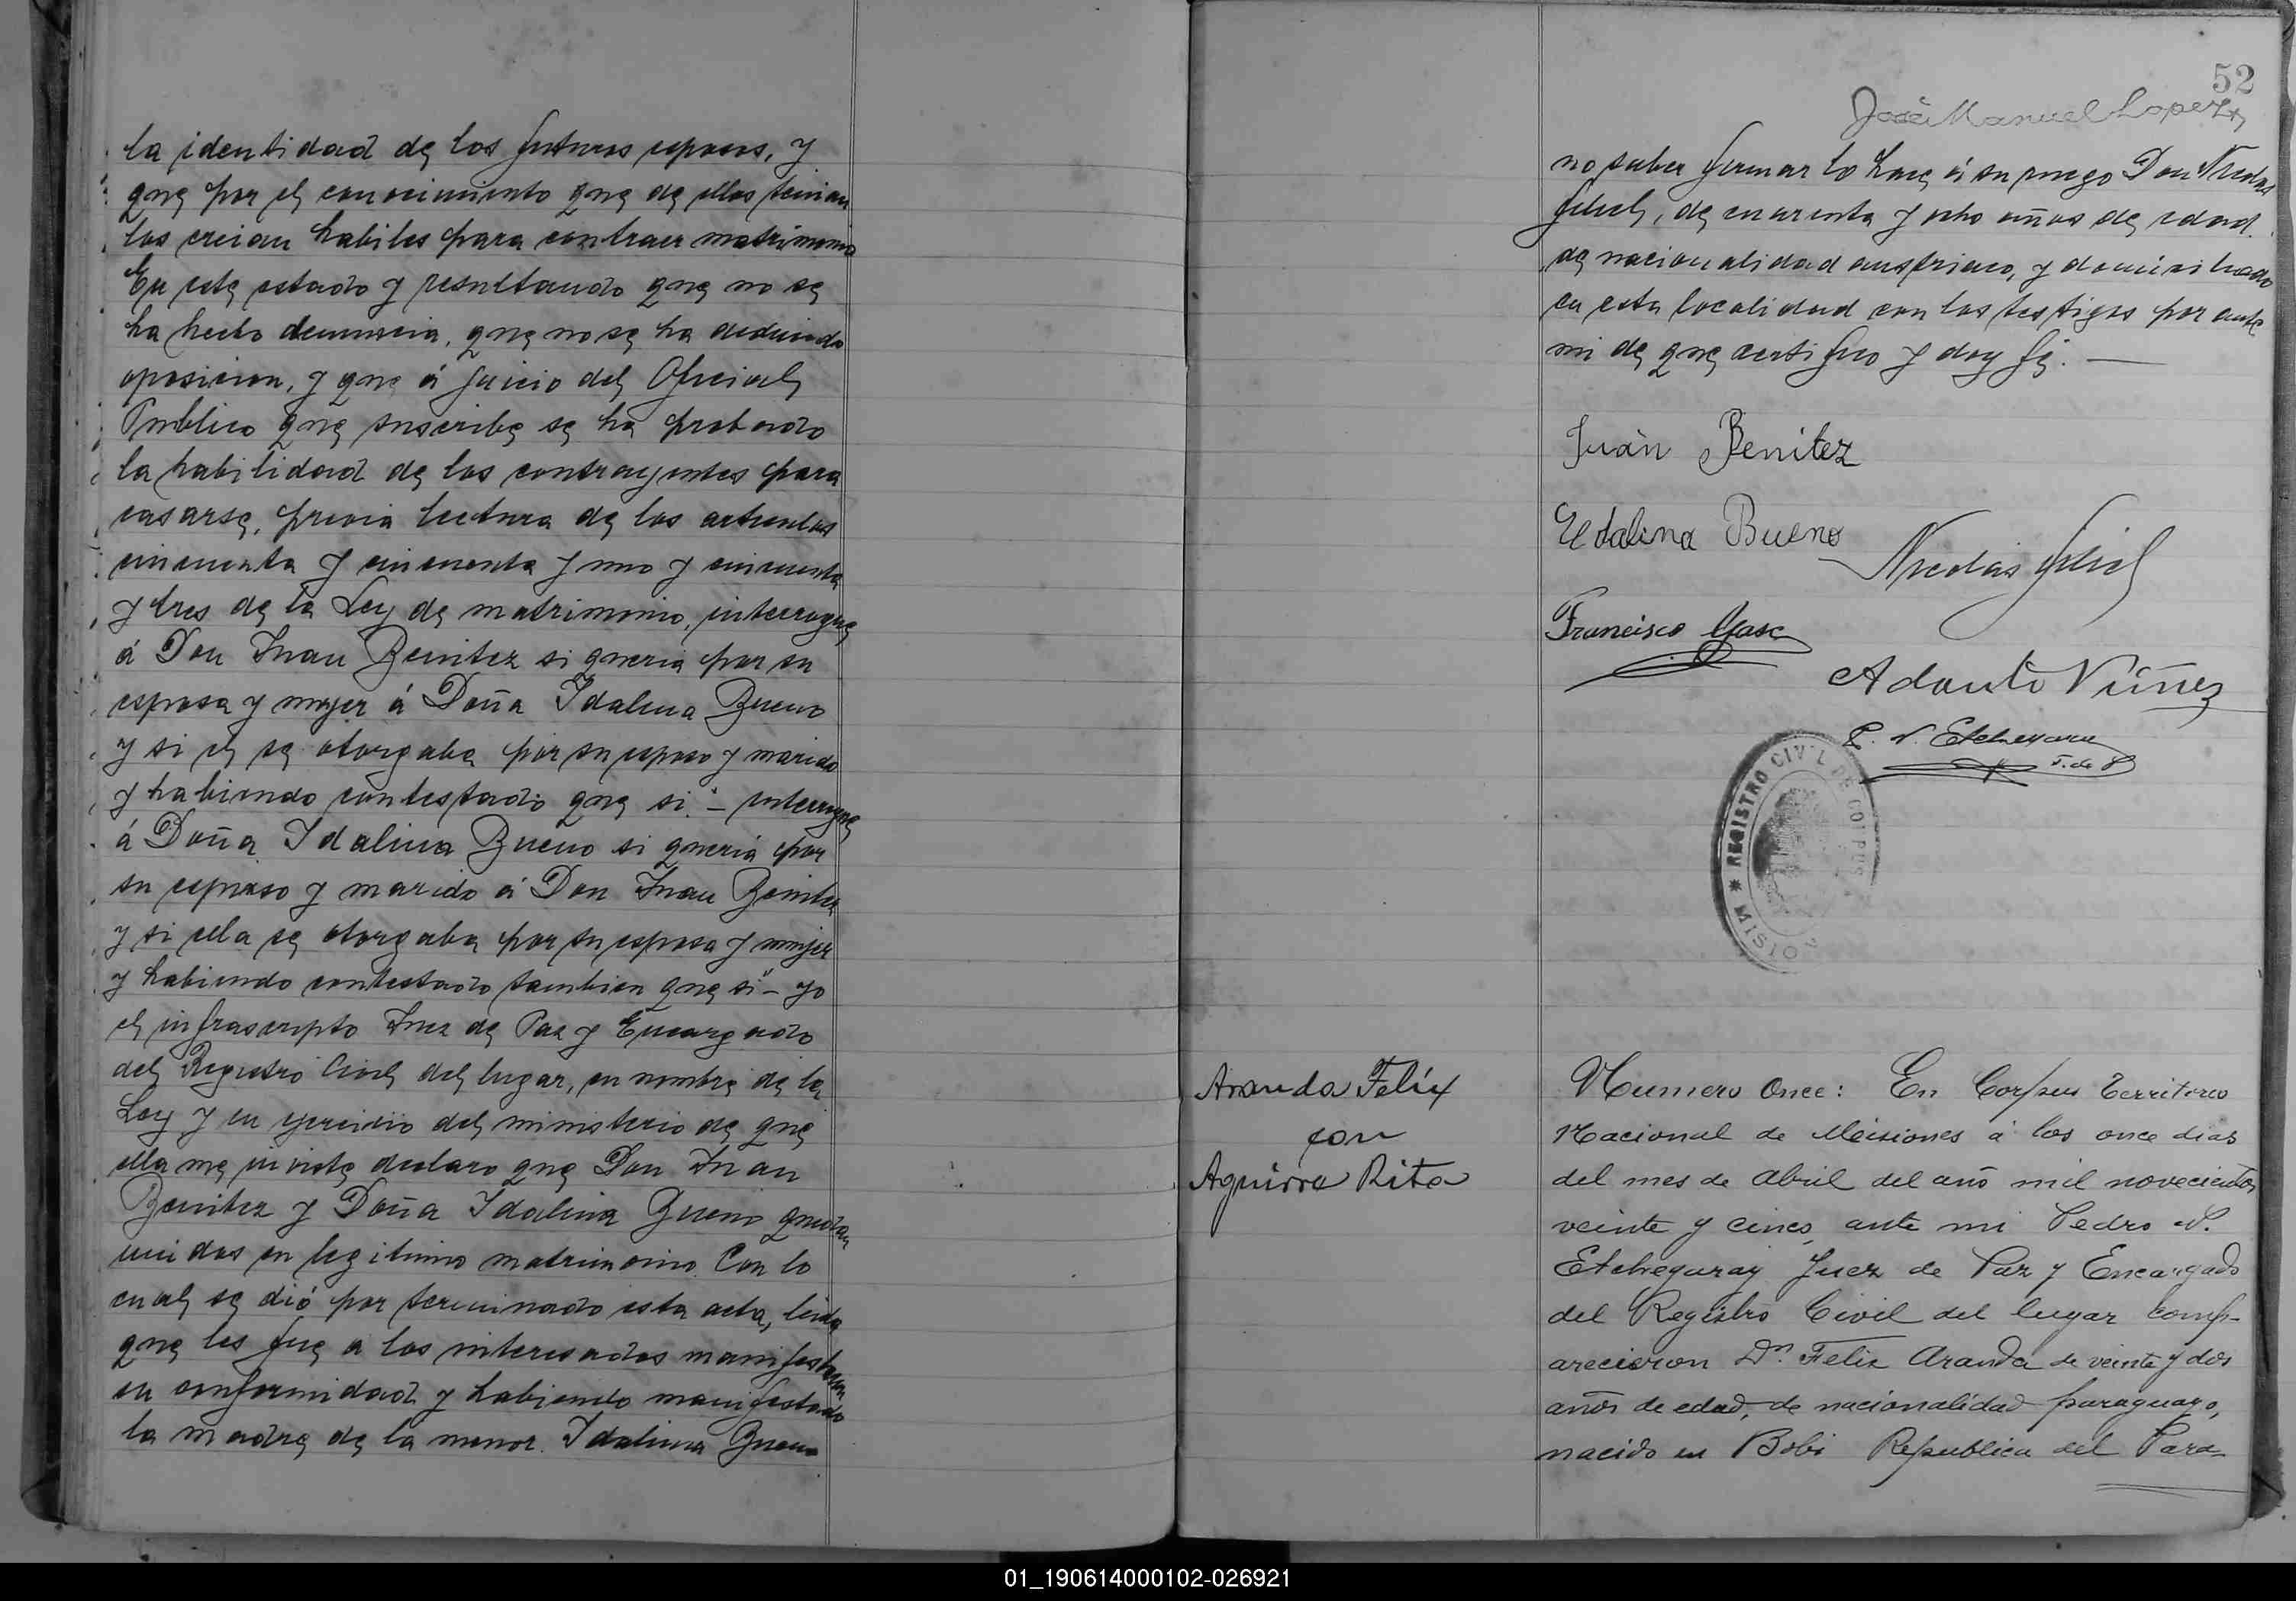 la identidad de los futuros esposos, y
que por el conocimiento que de ellos tenian
los creian habiles para contraer matrimonio
En este estado y resultando que no se
ha hecho denuncia, que no se ha deducido
oposicion, y que á juicio del Oficial
Publico que suscribe se ha probado
la habilidad de los contrayentes para
casarse, previa lectura de los articulos
cincuenta y cincuenta y uno y cincuenta
y tres de la Ley de matrimonio, interrogue
á Don Juan Benitez si queria por su
esposa y mujer á Doña Idalina Bueno
y si el se otorgaba por su esposo y marido
y habiendo contestado que si - interrogue
á Doña Idalina Bueno si queria por
su esposo y marido á Don Juan Benitez
y si ella se otorgaba por su esposa y mujer
y habiendo contestado tambien que si - yo
el infrascripto Juez de Paz y Encargado
del Registro Civil del lugar, en nombre de la
Ley y en ejercicio del ministerio de que
ella me inviste declaro que Don Juan
Benitez y Doña Idalina Bueno quedan
unidos en legitimo matrimonio. Con lo
cual se dió por terminado esta acta, leida
que les fue a los interesados manifestaron
su conformidad y habiendo manifestado
la madre de la menor Idalina Bueno
52
José Manuel Lopez
no saber firmar lo hace á su ruego Don Nicolas
de cuarenta y ocho años de edad
de nacionalidad austriaco, y domiciliado
en esta localidad con los testigos por ante
mi de que certifico y doy fé.
Juan Benitez
Edalina Bueno
Nicolás
Francisco
Adauto Núñez
P. N. Etchegaray
J. de P
* REGISTRO CIVIL DE CORPUS * MISION
Aranda Felix
con
Aguirre Rita
Numero Once: En Corpus Territorio
Nacional de Misiones á los once dias
del mes de Abril del año mil novecientos
veinte y cinco, ante mi Pedro N.
Etchegaray Juez de Paz y Encargado
del Registro Civil del lugar comp-
arecieron Dn. Felix Aranda de veinte y dos
años de edad, de nacionalidad paraguayo,
nacido en Bobi Republica del Para-
01_190614000102-026921